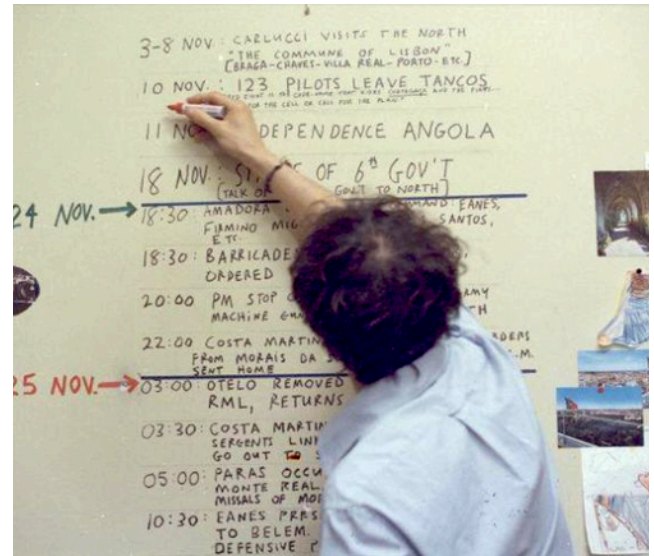 3-8 NOV: CARLUCCI VISITS THE NORTH
"THE COMMUNE OF LISBON"
[BRAGA-CHAVES-VILLA REAL-PORTO-ETC.]
10 NOV.: 123 PILOTS LEAVE TANCOS
FOR THE CELL OR CELL FOR THE PLAN"
11 NO DEPENDENCE ANGOLA
18 NOV.: ST OF 6th GOV'T
(TALK OF GOV'T TO NORTH)
24 NOV.
18:30: AMADORA MMAND: EANES,
FIRMINO MIG SANTOS,
ETC.
18:30: BARRICADE
ORDERED
20:00 PM STOP RMY
MACHINE GUN TH
22:00 COSTA MARTIN DERS
FROM MORAIS DA S .M.
SENT HOME
25 NOV.
03:00: OTELO REMOVED
RML, RETURNS
03:30: COSTA MARTIN
SERGENTS LINK
GO OUT TO S
05:00: PARAS OCCU
MONTE REAL.
MISSALS OF MO
10:30: EANES PRES
TO BELEM.
DEFENSIVE P